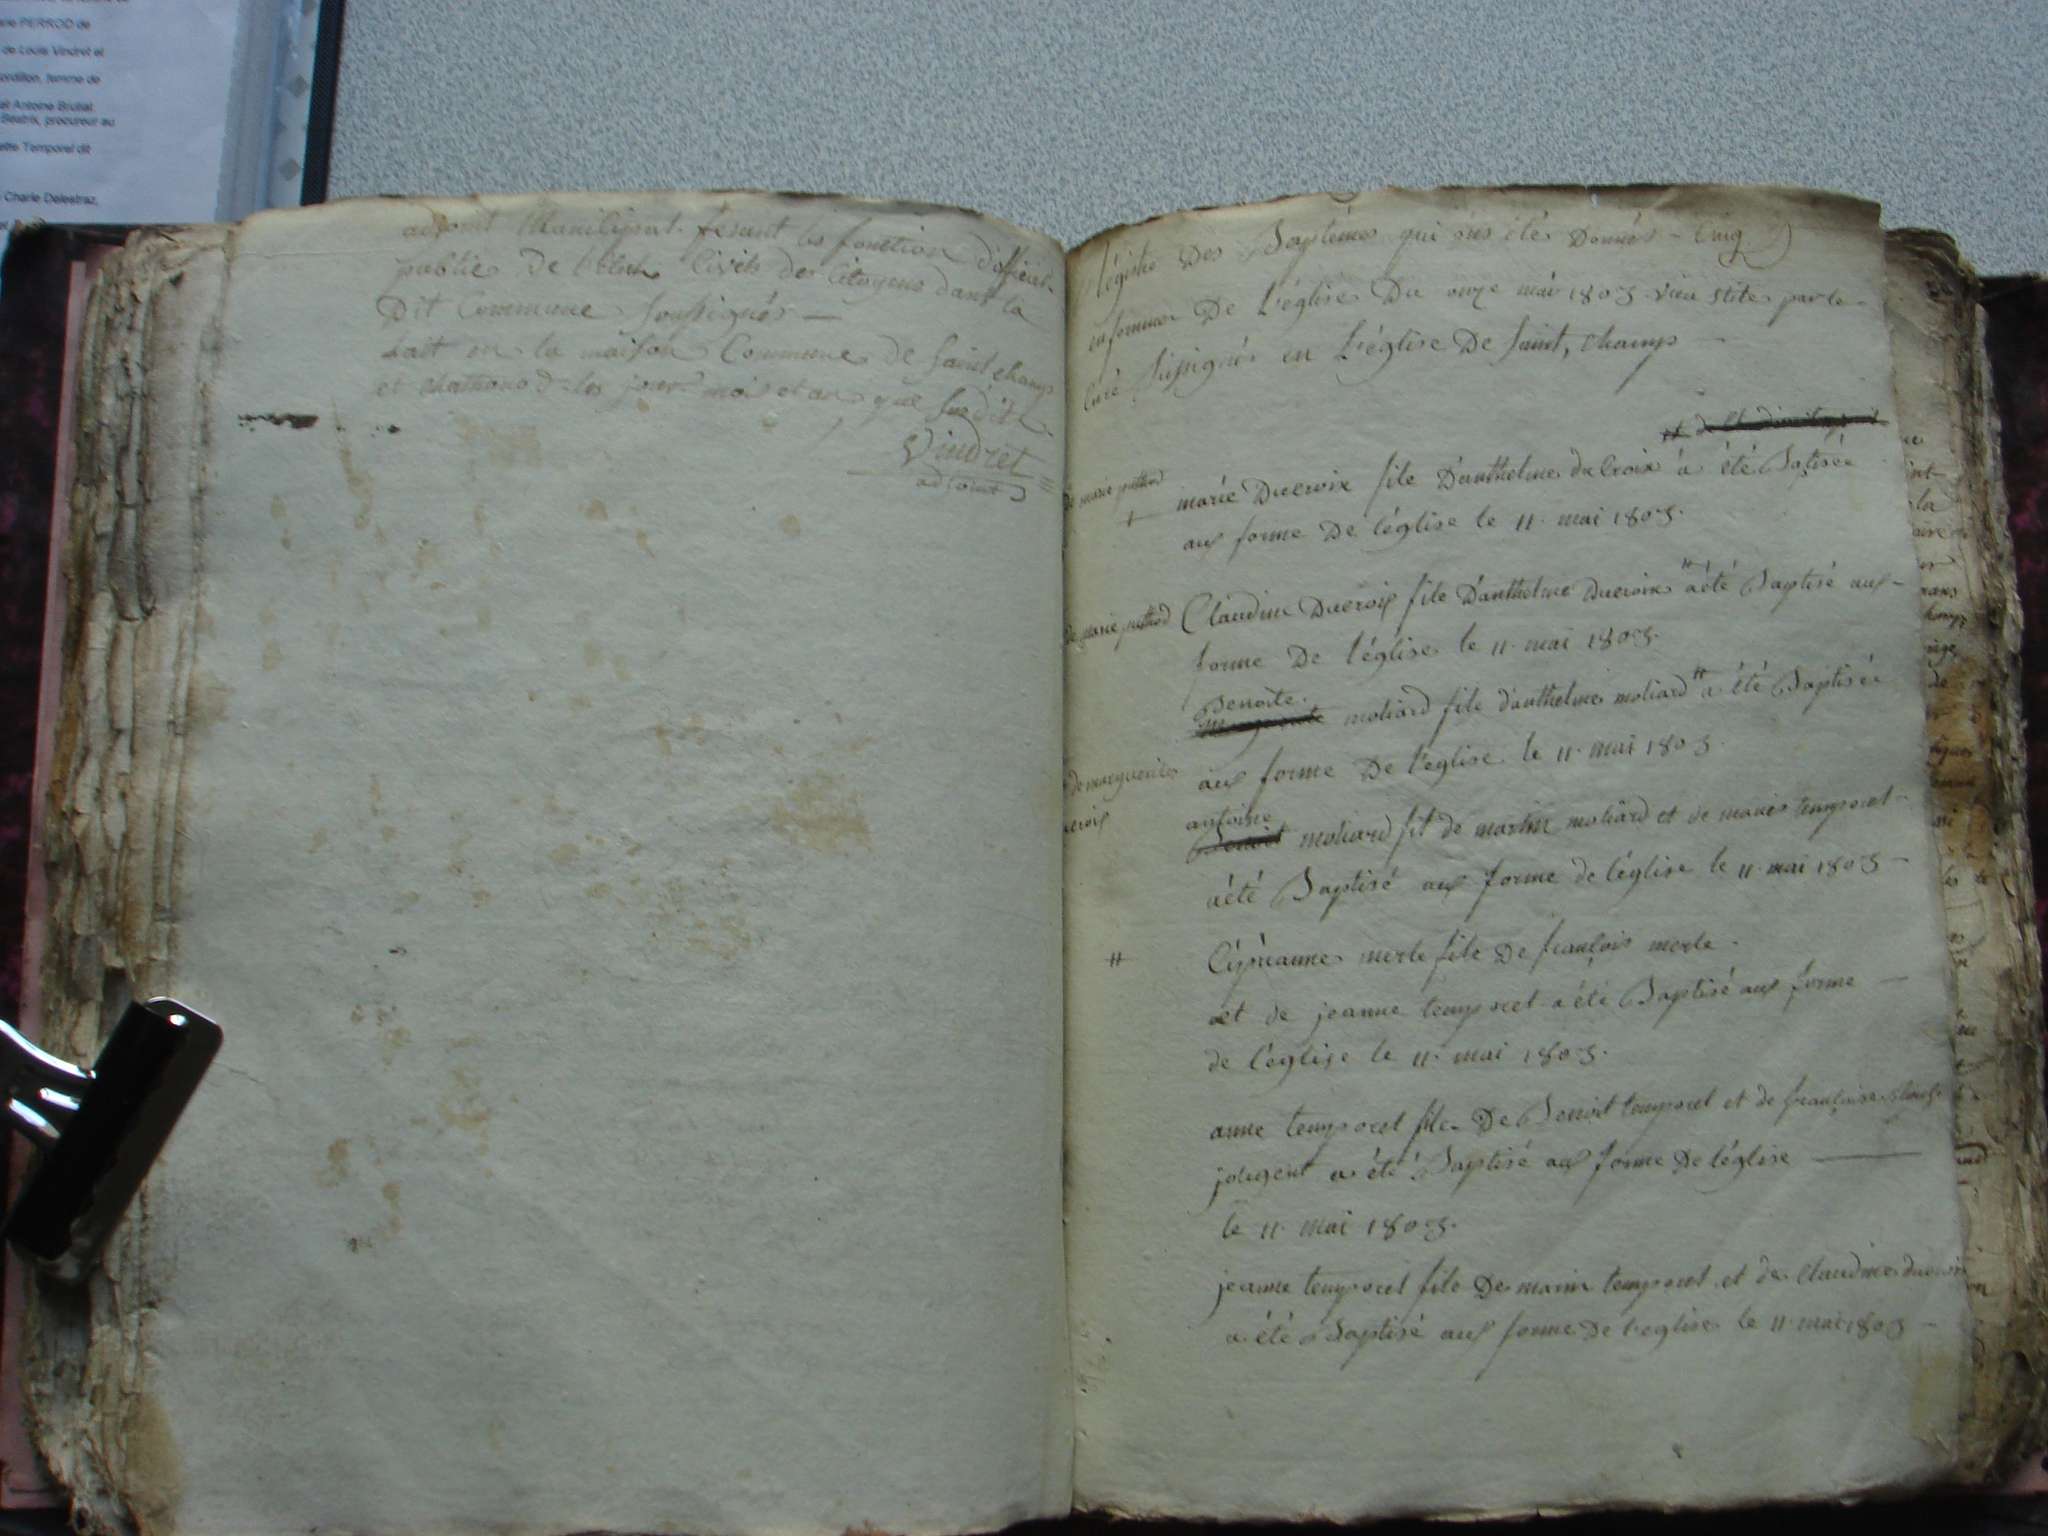 PERROD de
de Louis Vindret et
femme de
et Antoine Brullat
Béatrix, procureur au
Temporel dit
Charle Delestraz,
adjoint Municipal fesant les fonction d'officier
public de l'état Civils des Citoyens dans la
Dit Commune soussignés —
fait en la maison Commune de Saint champ
et chattonod les jour mois et an que susdit
Vindret
adjoint
Régistre Des Baptêmes qui ons été Donnés -
en forme De L'église Du onze mai 1803 vieu stile par le
Curé sussignés en L'église De Saint, Champ —
de marie puthod
marie Ducroix file D'anthelme du Croix a été Batisée
aux forme De l'église le 11. mai 1803.
de marie puthod
Claudine Ducroix file D'anthelme Ducroix " a été Baptisé aux -
forme De l'église le 11. mai 1803.
Benoite.
moliard file d'anthelme moliard " a été Baptisée
de marguerites
aux forme De l'eglise le 11. mai 1803.
antoine
Benoit moliard fil de martin moliard et de marie temporel -
a été Baptisé aux forme de l'église le 11. mai 1803 -
Ciprianne merle file De françois merle -
et de jeanne temporel a été Baptisé aux forme —
de l'église le 11. mai 1803.
anne temporel file De Benoit temporel et de françoise
a été Baptisé aux forme De l'église —
le 11. mai 1803.
jeanne temporel file De marin temporel et de Claudine ducroix
a été Baptisé aux forme De l'eglise le 11. mai 1803 -